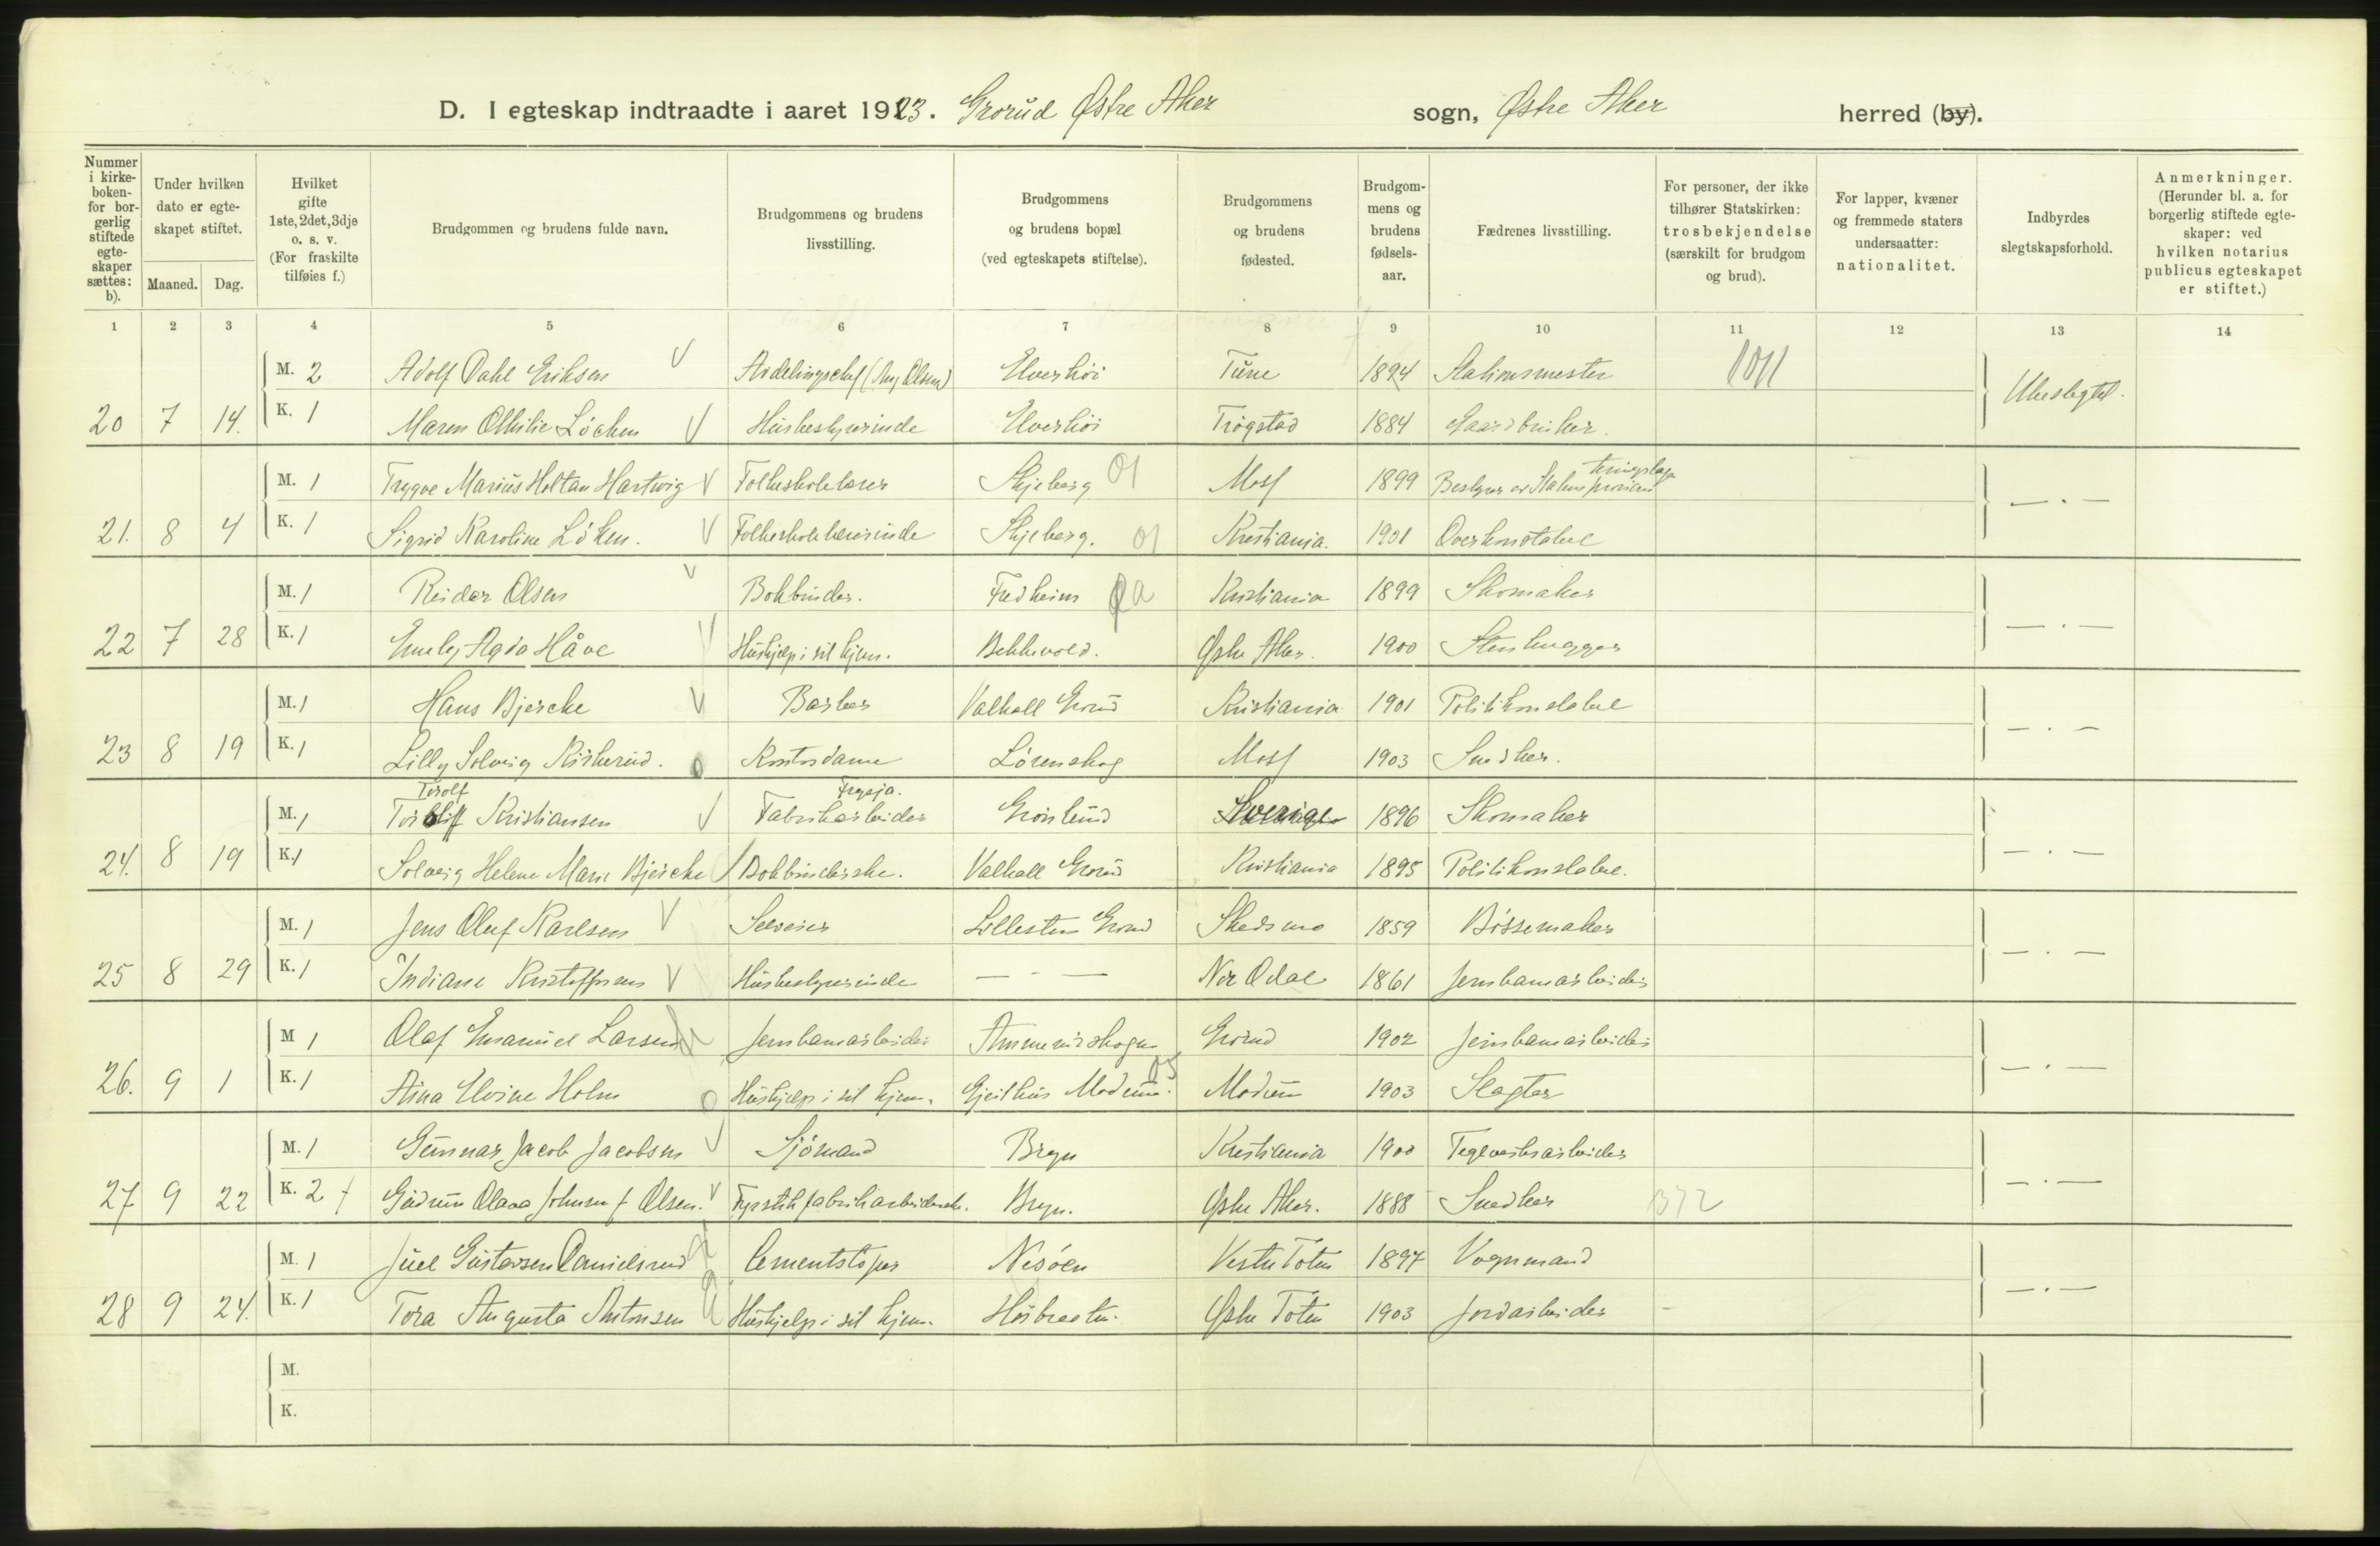 D. I egteskap indtraadte i aaret 1923. Grorud Østre Aker sogn, Østre Aker herred (by).
Nummer i kirkeboken- for borgerlig stiftede egteskaper sættes: b).
Under hvilken dato er egteskapet stiftet.
Maaned. Dag.
Hvilket gifte 1ste, 2det, 3dje o. s. v. (For fraskilte tilføies f.)
Brudgommen og brudens fulde navn.
Brudgommens og brudens livsstilling.
Brudgommens og brudens bopæl (ved egteskapets stiftelse).
Brudgommens og brudens fødested.
Brudgommens og brudens fødselsaar.
Fædrenes livsstilling.
For personer, der ikke tilhører Statskirken: trosbekjendelse (særskilt for brudgom og brud).
For lapper, kvæner og fremmede staters undersaatter: nationalitet.
Indbyrdes slegtskapsforhold.
Anmerkninger. (Herunder bl. a. for borgerlig stiftede egteskaper: ved hvilken notarius publicus egteskapet er stiftet.)
1 2 3 4 5 6 7 8 9 10 11 12 13 14
M. 2 Adolf Dahl Eriksen Avdelingschef (Aug Olsen) Elverhöi Tune 1894 Stationsmester
20 7 14. K. 1 Maren Othilie Löchen Husbestyrerinde Elverhöi Trögstad 1884 Gaardbruker. Ubeslegtet.
M. 1 Trygve Marius Holtan Hartwig Folkeskolelærer Skjeberg 01 Moss 1899 Bestyrer av Statens provianteringslager
21. 8 4 K. 1 Sigrid Karoline Löken. Folkeskolelærerinde Skjeberg. 01 Kristiania. 1901 Overkonstabel — . —
M. 1 Reidar Olsen Bokbinder. Fredheim Kristiania 1899 Skomaker
22 7 28 K. 1 Emely Agda Håve Hushjælp i sit hjem. Bekkevold. Østre Aker. 1900 Stenhugger — . —
M. 1 Hans Bjercke Barber Valhall Grorud Kristiania 1901 Politikonstabel
23 8 19 K. 1 Lilly Solveig Riskerud. Kontordame Lörenskog Moss 1903 Snedker. — . —
Torolf Frysja.
M. 1 Kristiansen Fabrikarbeider Grönlund Sverige 1896 Skomaker
24. 8 19 K. 1 Solveig Helene Marie Bjercke Bokbinderske. Valhall Grorud Kristiania 1895 Politikonstabel. — . —
M. 1 Jens Oluf Karlsen Selveier Lillesten Grorud Skedsmo 1859 Bössemaker
25 8 29 K. 1 Indiane Kristoffersen Husbestyrerinde — - — Nor Odal 1861 Jernbanearbeider — . —
M 1 Olaf Emanuel Larsen Jernbanearbeider Ammerudskogen Grorud 1902 Jernbanearbeider
26. 9 1 K. 1 Aina Elvine Holm Hushjælp i sit hjem. Gjeithus Modum. 05 Modum 1903 Slagter — . —
M. 1 Gunnar Jacob Jacobsen Sjömand Bryn Kristiania 1900 Teglverksarbeider
27 9 22 K. 2 f Gudrun Olava Johnsen f Olsen. Fyrstikfabrikarbeiderske. Bryn. Østre Aker. 1888 Snedker — . —
M. 1 Juel Gustavsen Danielsrud Cementstöper Nesöen Vestre Toten 1897 Vognmand
28 9 24. K. 1 Tora Augusta Antonsen Hushjelp i sit hjem. Höibraaten. Østre Toten 1903 Jordarbeider — . —
M.
K.